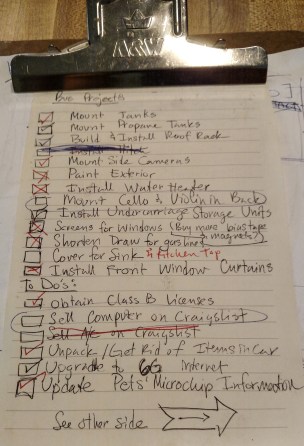 Bus Projects
Mount Tanks
Mount Propane Tanks
Build & Install Roof Rack
Install Hitch
Mount Side Cameras
Paint Exterior
Install Water Heater
Mount Cello & Violin in Back
Install Undercarriage Storage Units
Screens for Windows (Buy more bias tape & magnets)
Shorten Draw for gas sheet
Cover for Sink & Kitchen Top
Install Front Window Curtains
To Do's:
Obtain Class B Licenses
Sell Computer on Craigslist
Sell A/C on Craigslist
Unpack/Get Rid of Items in Car
Upgrade to 6G Internet
Update Pets' Microchip Information
See other side